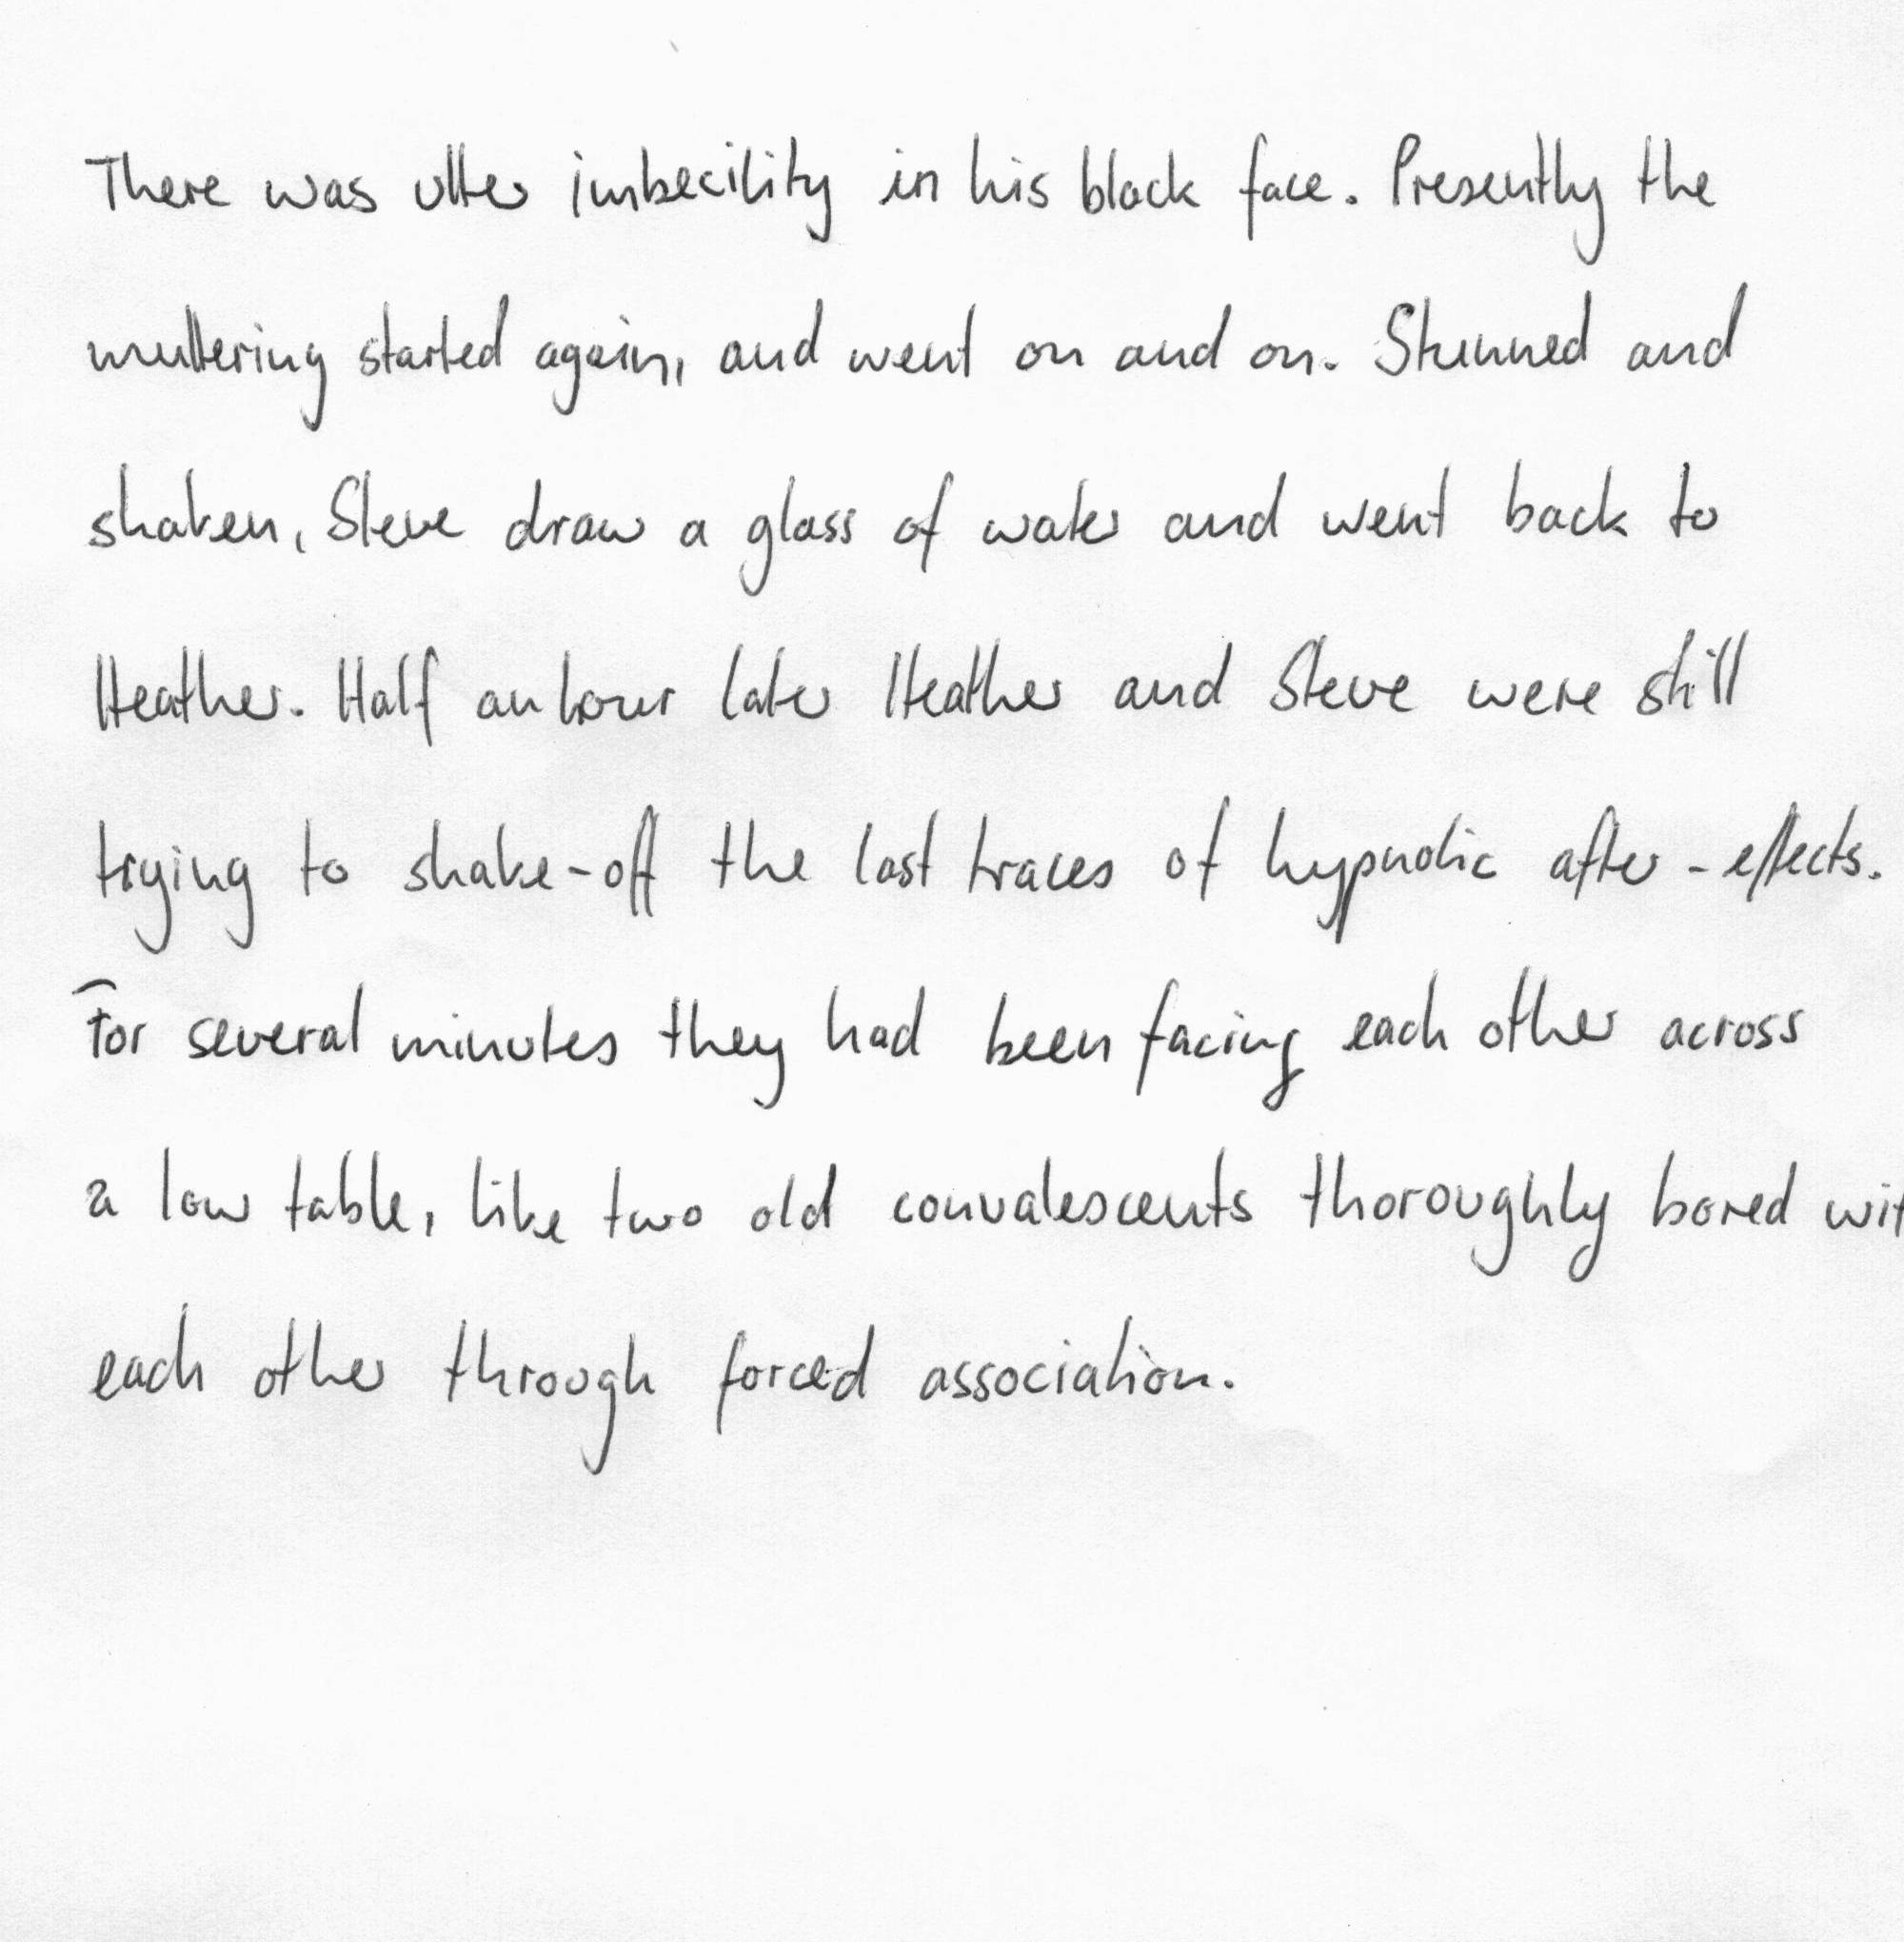 There was utter imbecility in his black face. Presently the
muttering started again, and went on and on. Stunned and
shaken, Steve draw a glass of water and went back to
Heather. Half an hour later Heather and Steve were still
trying to shake-off the last traces of hypnotic after-effects.
For several minutes they had been facing each other across
a low table, like two old convalescents thoroughly bored wit
each other through forced association.